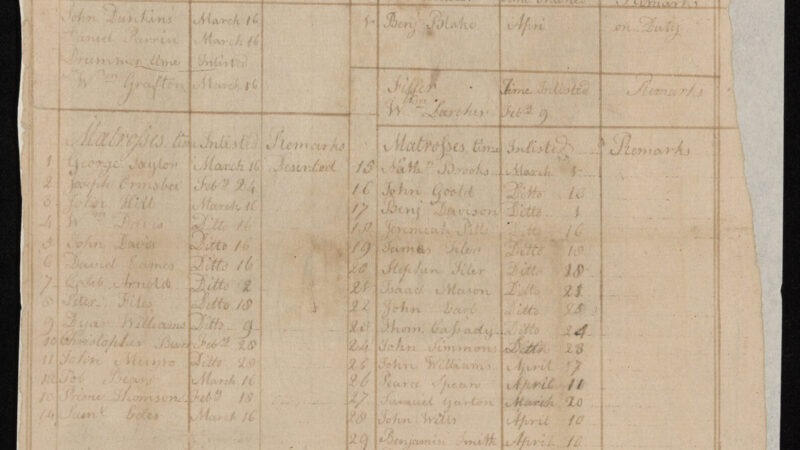 Remarks
John Dunkins March 16
Daniel Perrin March 16
Drummer time Enlisted
Wm Grafton March 16
1 Benj Blake April on Duty
Fiffer Time Inlisted Remarks
Wm Larcher Febry 9
Matrosses time Inlisted Remarks
1 George Taylor March 16 Deserted
2 Joseph Ormsbee Febry 24
3 John Hill March 16
4 Wm Davis Ditto 16
5 John Davis Ditto 16
6 David Eames Ditto 16
7 Caleb Arnold Ditto 2
8 Peter Files Ditto 18
9 Dyar Williams Ditto 9
10 Christopher Febry 28
11 John Munro Ditto 28
12 Job March 16
13 Prime Thomson Febry 18
14 Saml Coles March 16
Matrosses time Inlisted Remarks
15 Nathn Brooks March 1
16 John Goold Ditto 16
17 Benj Davison Ditto 1
18 Jeremiah Ditto 16
19 James Tiler Ditto 18
20 Stephen Tiler Ditto 18
21 Isaac Mason Ditto 21
22 John Earl Ditto 25
23 Thom Cassady Ditto 24
24 John Simmons Ditto 23
25 John Williams April 17
26 Pearce Spear April 11
27 Samuel Garton March 20
28 John Wells April 10
29 Benjamin Smith April 10